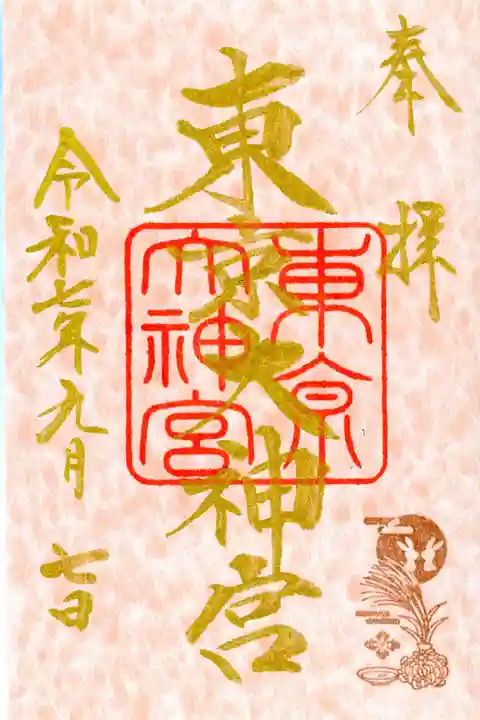 奉拝
東京大神宮
東京
大神宮
令和七年九月七日